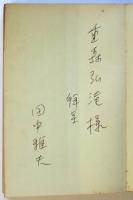 重森弘淹様
田中雅夫